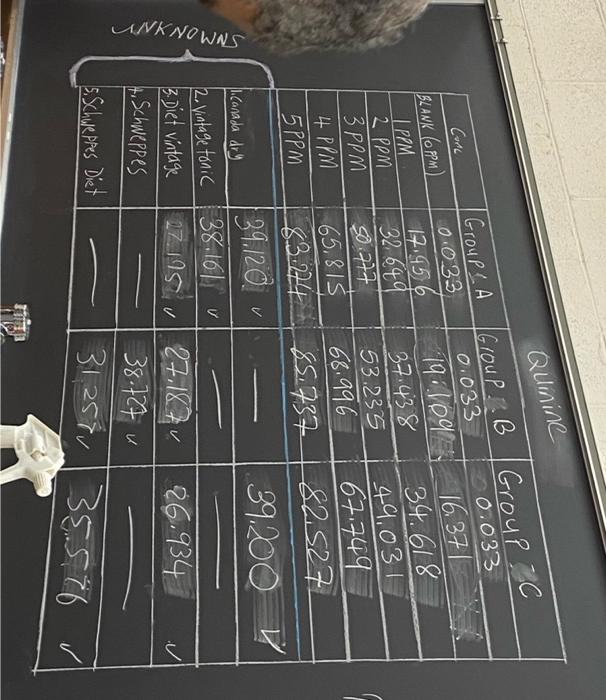 Quinine
Conc Group: A Group: B Group: C
BLANK (0 PPM) 0.033 0.033 0.033
1 PPM 17.956 19.109 16.371
2 PPM 32.649 37.438 34.618
3 PPM 50.777 53.235 49.031
4 PPM 65.815 68.996 67.749
5 PPM 83.274 85.737 82.527
UNKNOWNS
1. Canada dry 39.120 ✓ — 39.200 ✓
2. Vintage tonic 38.161 ✓ — —
3. Diet vintage 27.195 ✓ 27.187 ✓ 26.934 ✓
4. SCHWEPPES — 38.127 ✓ —
5. Schweppes Diet — 31.257 ✓ 35.576 ✓